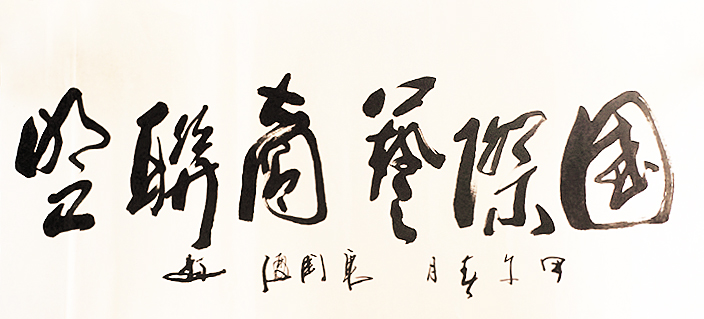 國際藝商聯盟
甲午春月